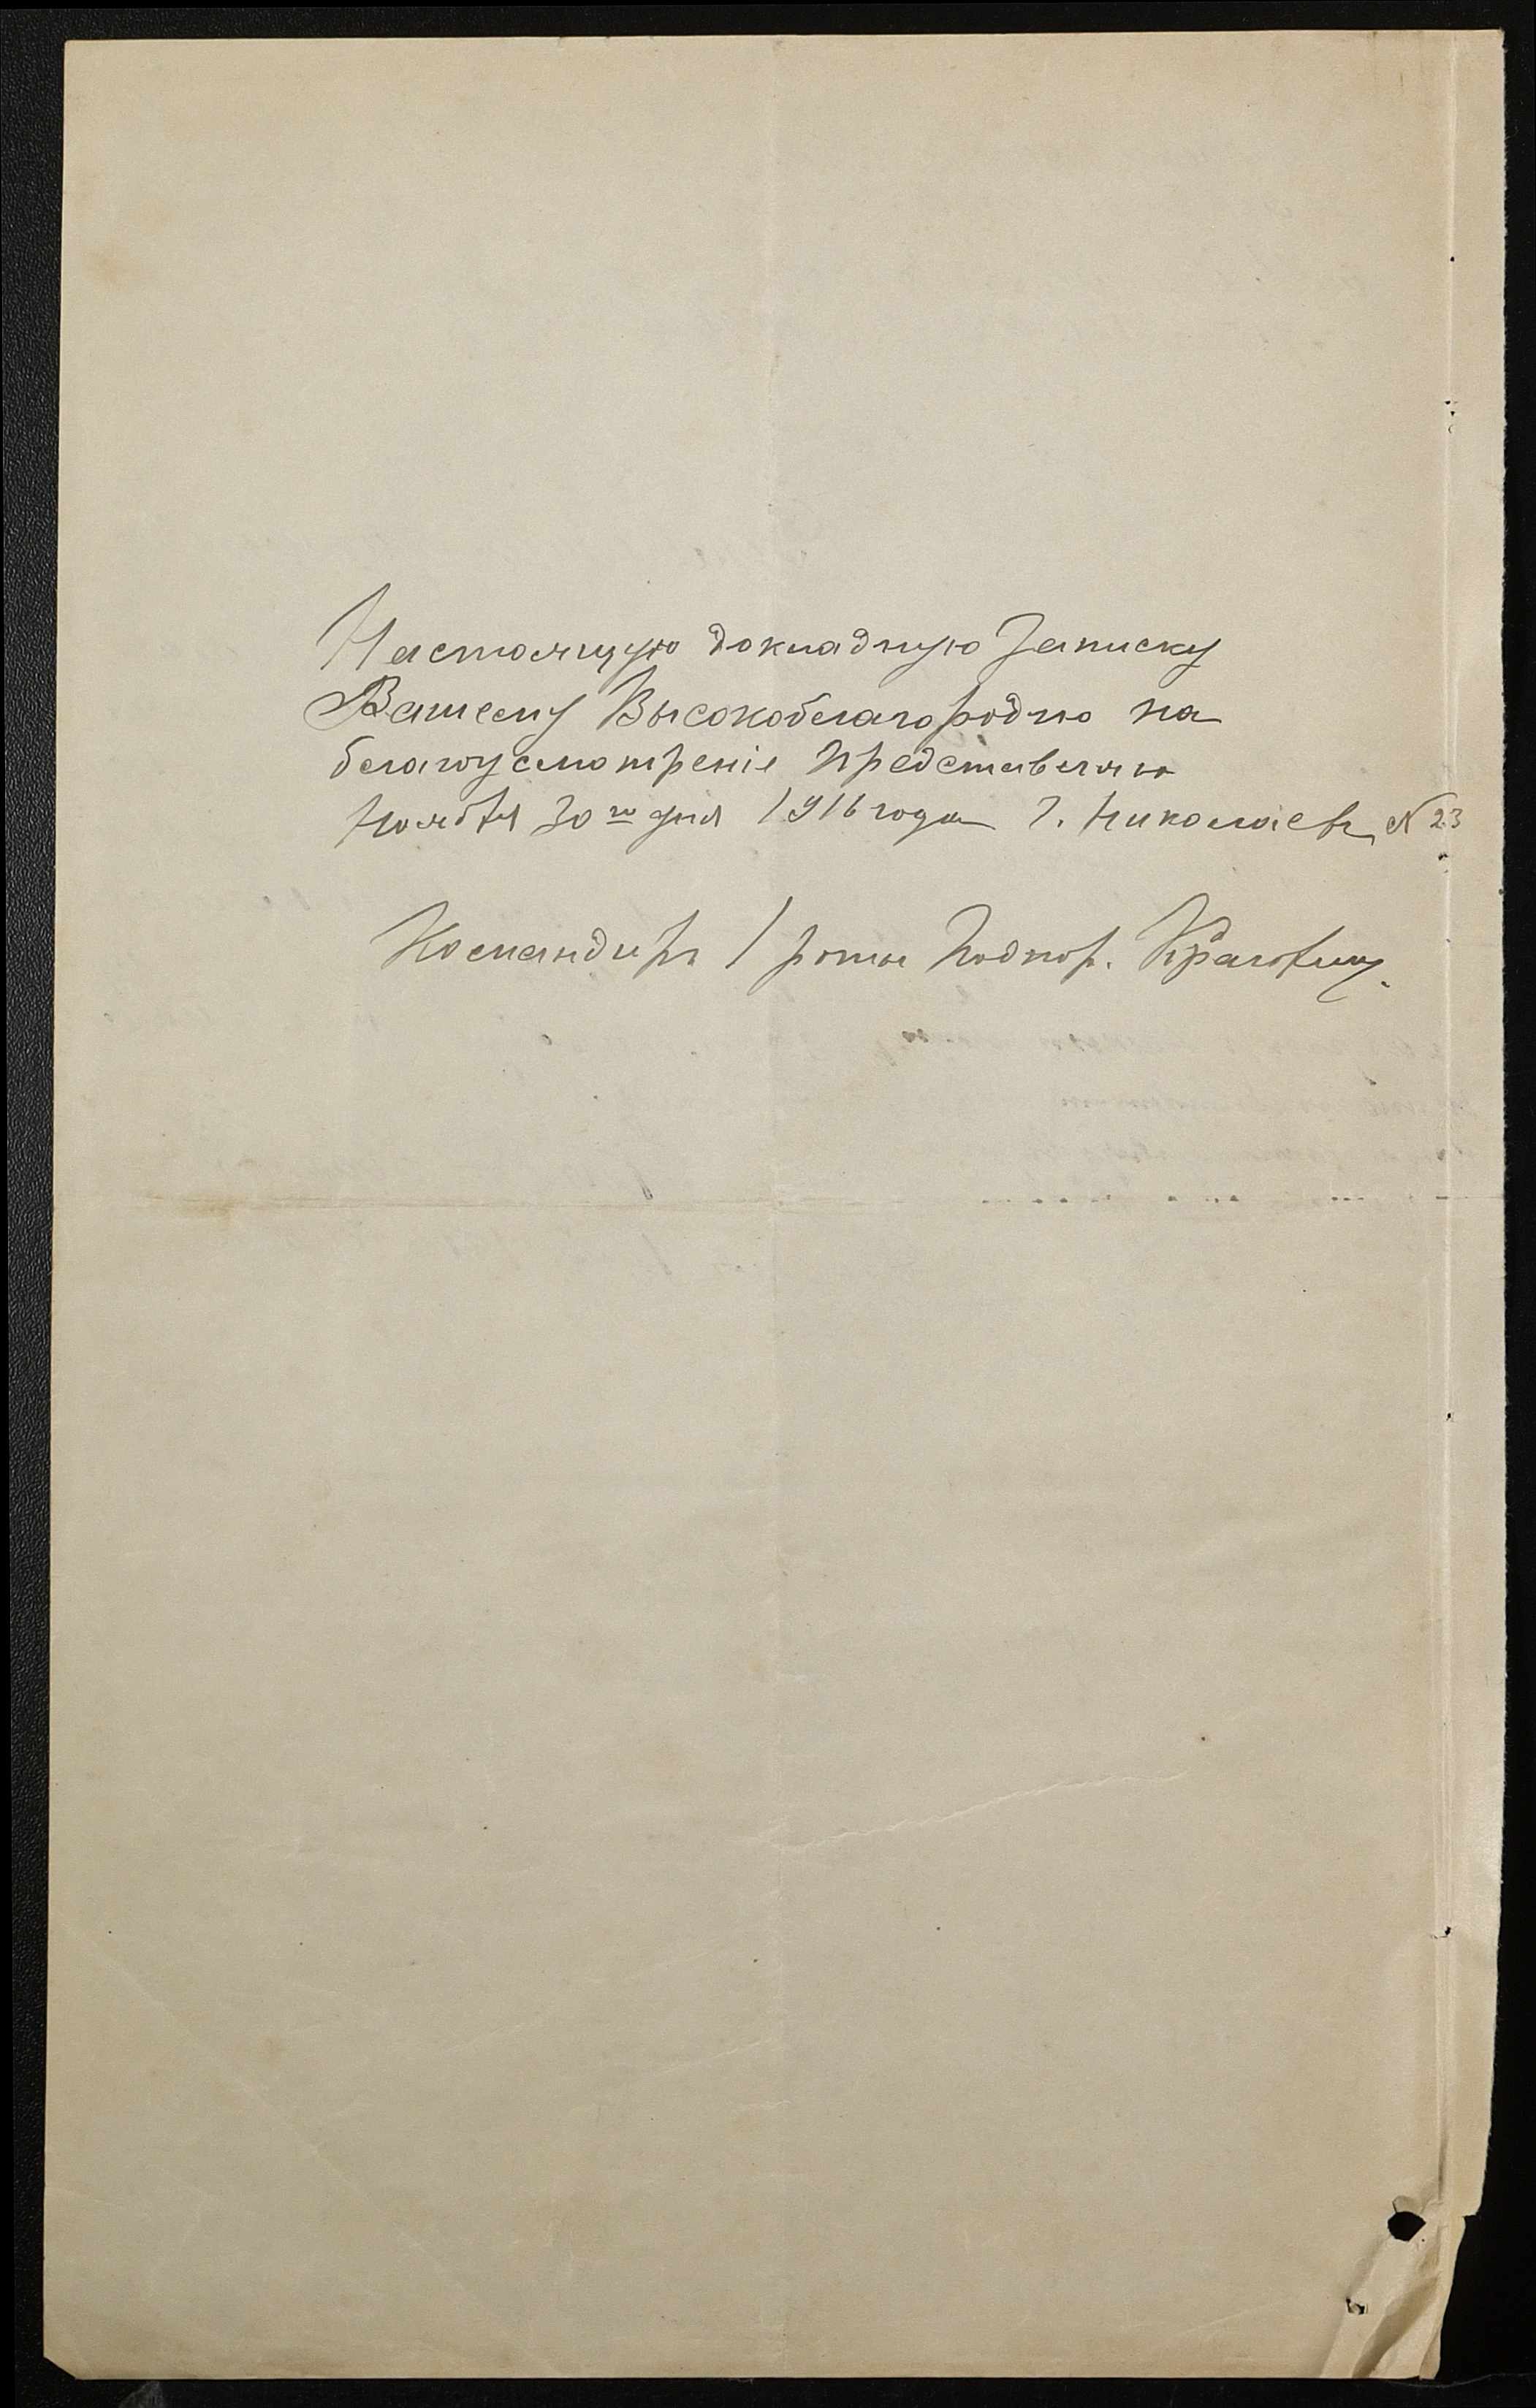 Настоящую докладную записку
Вашему Высокоблагородiю на
благоусмотренiе представляю
Ноября 30го дня 1916 года г. Николаевъ №23
Командиръ 1 роты Подпор.